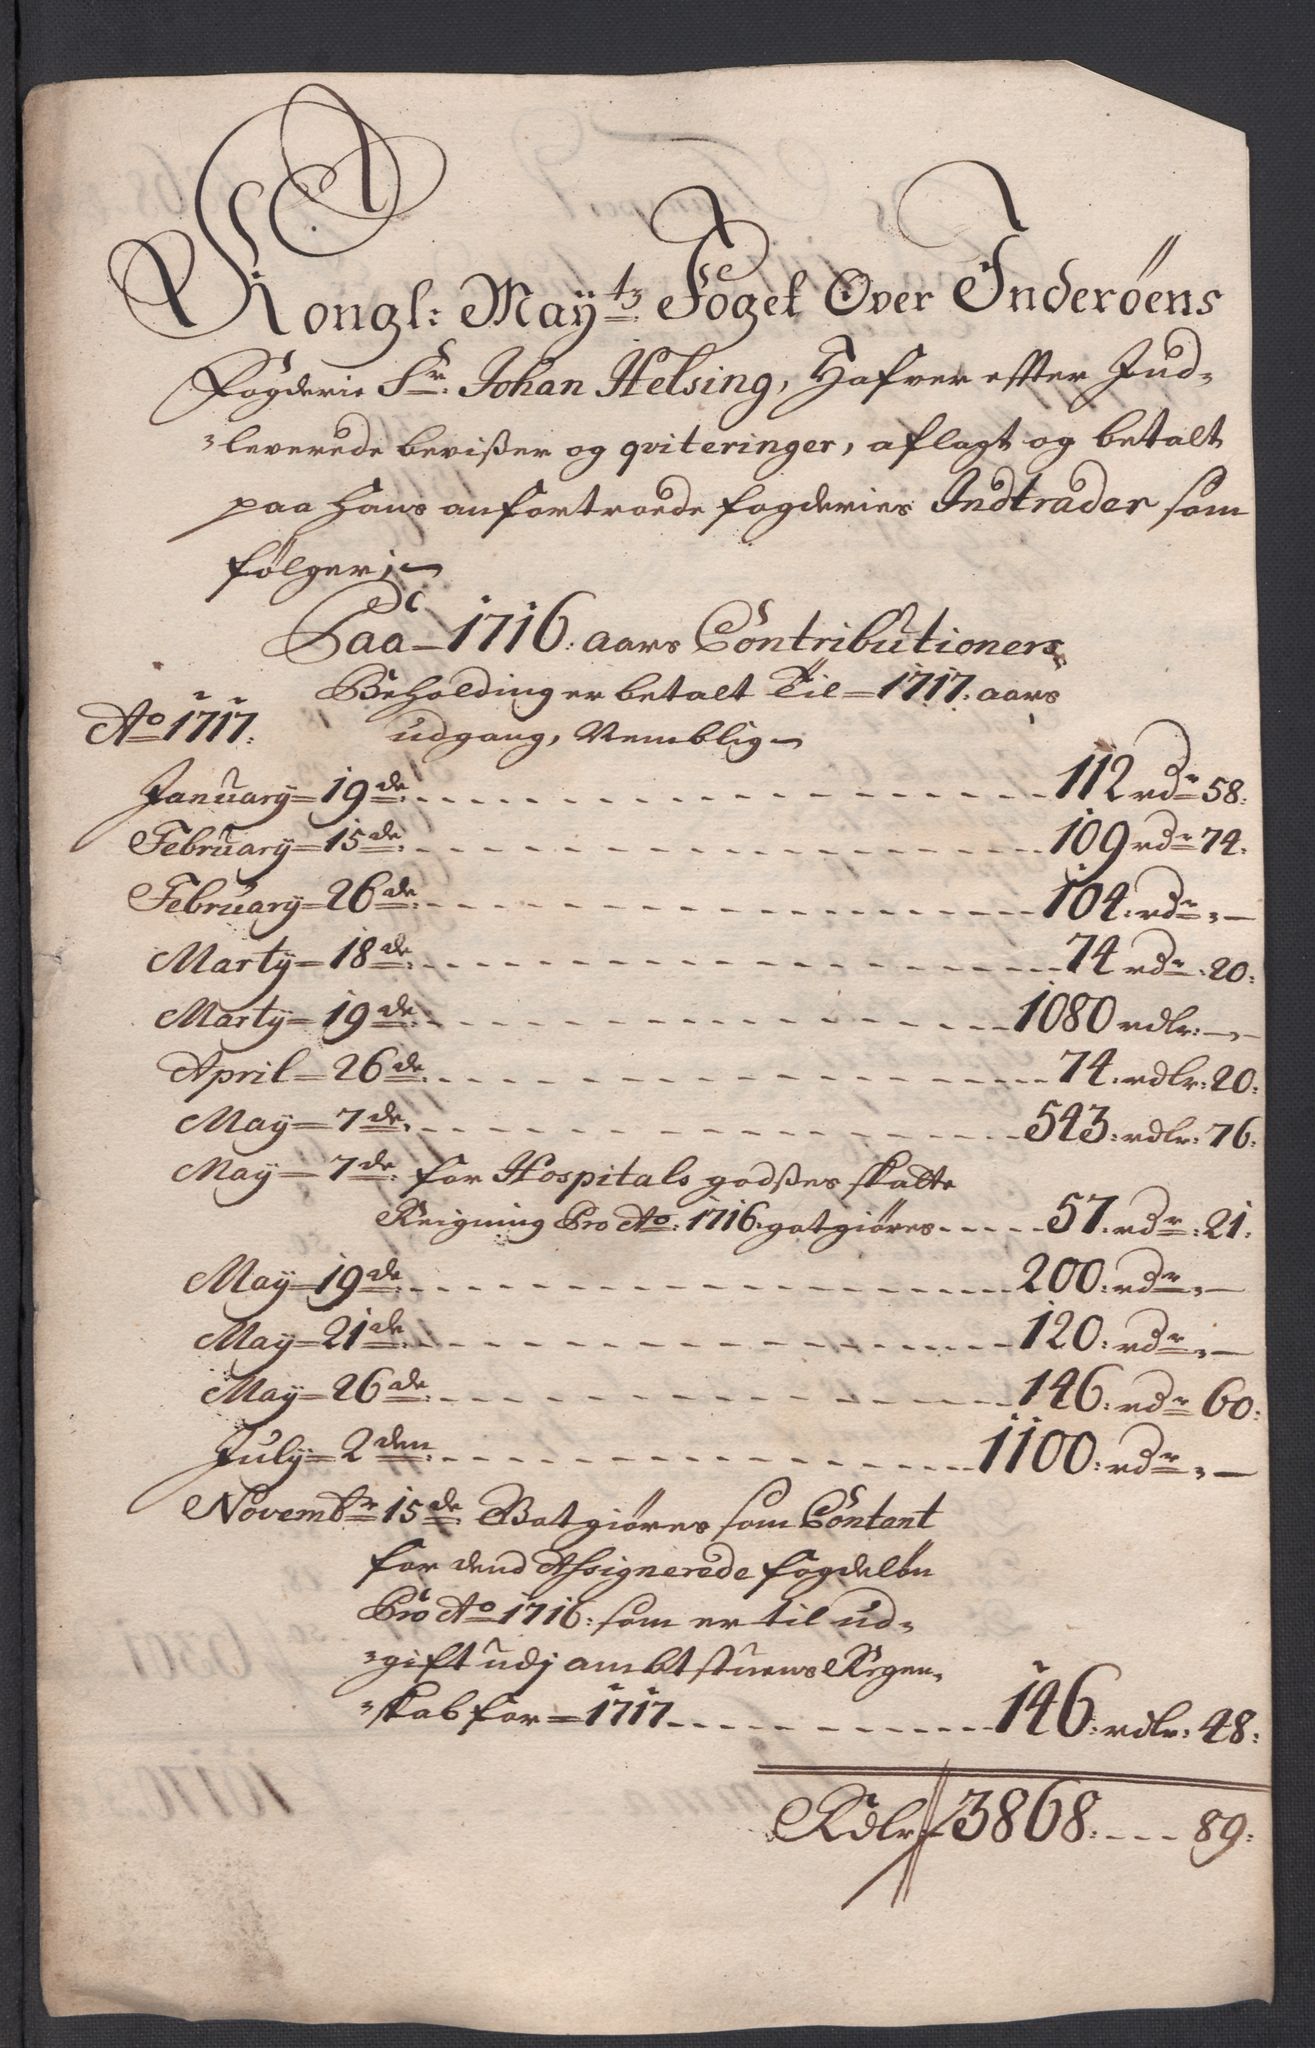 Kongl: May.tz Foget Over Inderöens
Fogderie Sr. Johan Helsing, Hafver effter Ind-
leverede bevißer og qviteringer, aflagt og betalt
paa hans anfortroede fogderies Indtrader som
fölger;
Paa 1716: aars Contributioners
Beholding er betalt Til 1717. aars
Ao 1717. udgang, Nemblig
January 19de 112 rdr 58:
February 15de 109 rdr 74.
February 26de 104. rdr. —
Marty 18de 74 rdr. 20:
Marty 19de 1080 rdlr: —
April 26de 74. rdlr: 20:
May 7de 543. rdlr: 76:
May 7de for Hospitals godßes skatte
Reigning Pro Ao: 1716. gotgiöres 57. rdr. 21.
May 19de 200: rdr. —
May 21de 120: rdr. —
May 26de 146: rdr 60:
July 2den 1100: rdr. —
Novembr 15de Gotgiöres som Contant
for dend Assignerede fogdelön
Pro Ao 1716: som er til ud-
gift udj ambtstuens Regen-
skab for 1717 146: rdlr: 48:
Rdlr 3868: 89: